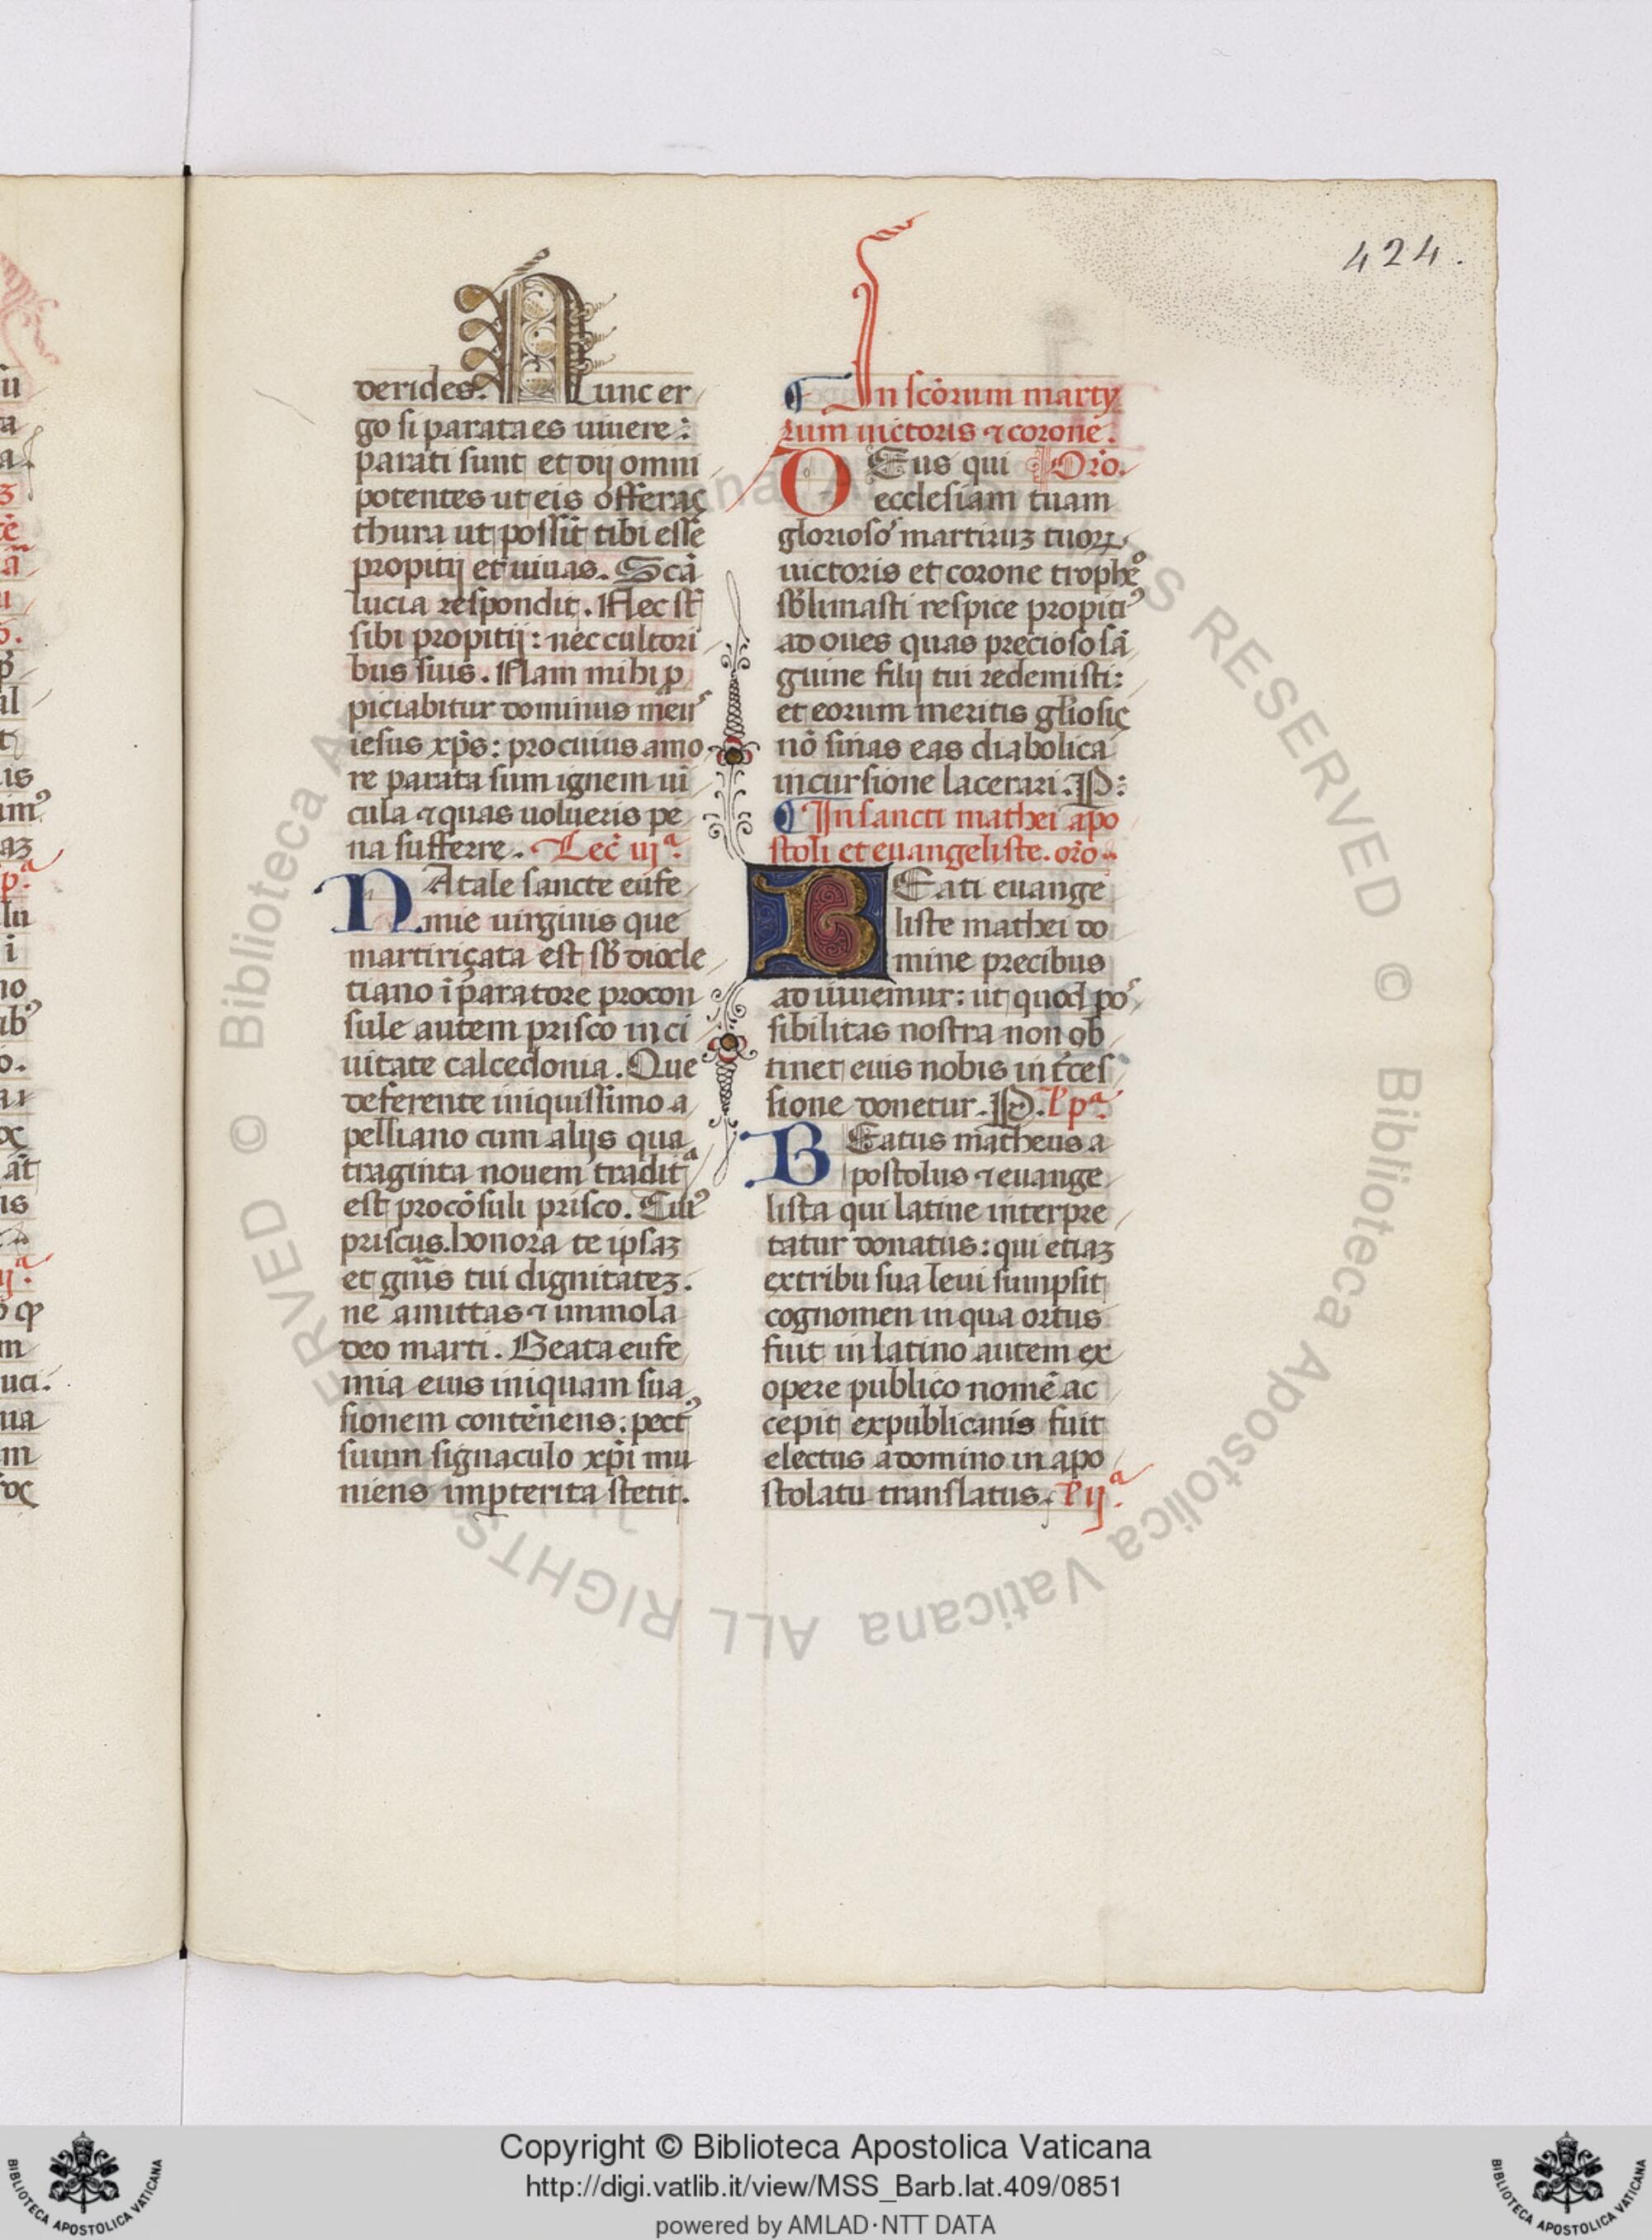 424.
derides. Nunc er
go si parata es uiuere:
parati sunt et dij omni
potentes ut eis offeras
thura ut possīt tibi esse
propitij et uiuas. Scā
lucia respondit. Nec st̄
sibi propitij: nec cultori
bus suis. Nam mihi ꝓ
piciabitur dominus meus
iesus xp̄s: pro cuius amo
re parata sum ignem uī
cula ⁊ quas uolueris pe
na sufferre. Lec̄ iijᵃ.
NAtale sancte eufe
mie uirginis que
martiriçata est sb̄ diocle
tiano īꝑatore procon
sule autem prisco in ci
uitate calcedonia. Que
deferente iniquissimo a
pelliano cum alijs qua
traginta nouem traditᵃ
est procōsuli prisco. Cuiꝰ
priscus. honora te ipsaꝫ
et gn̄is tui dignitateꝫ.
ne amittas ⁊ immola
deo marti. Beata eufe
mia eius iniquam sua
sionem contēnens: pectꝰ
suum signaculo xp̄i mu
niens imꝑterita stetit.
¶ In scōrum marty
rum uictoris ⁊ corone.
DEus qui Orō.
ecclesiam tuam
glorioso martiruꝫ tuoꝝ
uictoris et corone tropheᵒ
sb̄limasti respice propitiꝰ
ad oues quas precioso sā
guine filij tui redemisti:
et eorum meritis gl̄iosiç
nō sinas eas diabolica
incursione lacerari. P:
¶ In sancti mathei apo
stoli et euangeliste. orō.
BEati euange
liste mathei do
mine precibus
adiuuemur: ut quod poˢ
sibilitas nostra non ob
tinet eius nobis int̄ces
sione donetur. P. l' pᵃ.
BEatus matheus a
postolus ⁊ euange
lista qui latine interpre
tatur donatus: qui etiaꝫ
ex tribu sua leui sumpsit
cognomen in qua ortus
fuit in latino autem ex
opere publico nomē ac
cepit ex publicanis fuit
electus a domino in apo
stolatu translatus. l' ijᵃ.
Copyright © Biblioteca Apostolica Vaticana
http://digi.vatlib.it/view/MSS_Barb.lat.409/0851
powered by AMLAD·NTT DATA